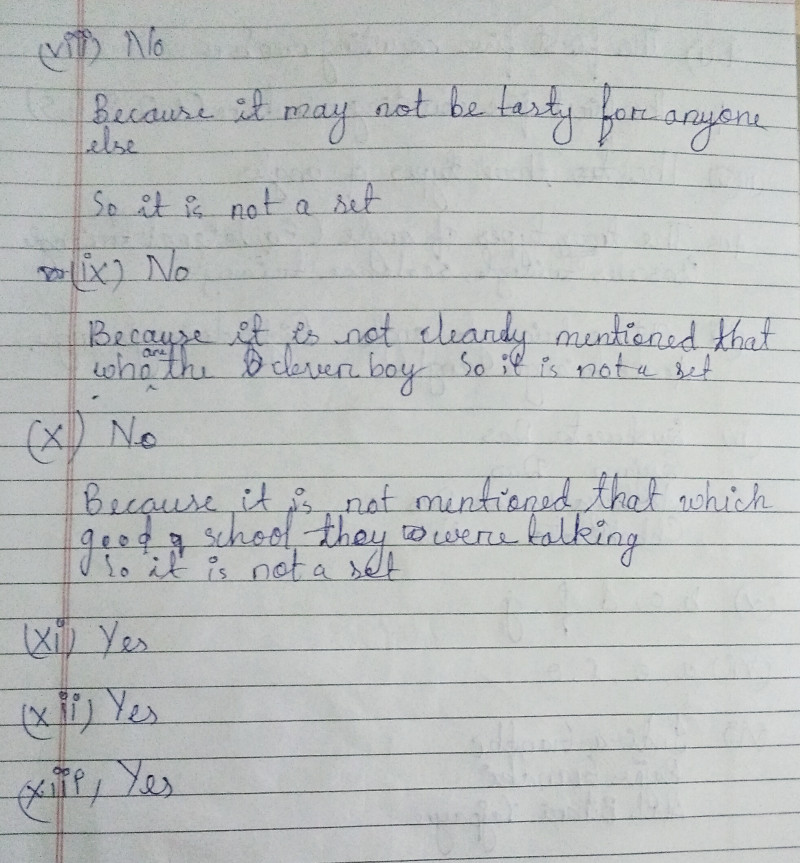 (viii) No
Because it may not be tasty for anyone
else
So it is not a set
(ix) No
Because it is not cleardy mentioned that
who are the clever boy So it is not a set
(x) No
Because it is not mentioned that which
good school they were talking
So it is not a set
(xi) Yes
(xii) Yes
(xiii) Yes